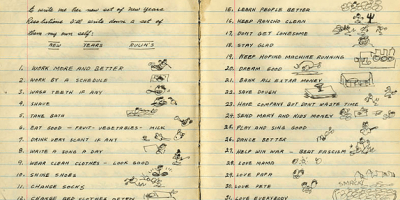 to write me her new set of New Years
Resolutions I'll write down a set of
these my own self:
NEW YEARS RULIN'S
1. WORK MORE AND BETTER
2. WORK BY A SCHEDULE
3. WASH TEETH IF ANY
4. SHAVE
5. TAKE BATH
6. EAT GOOD - FRUIT - VEGETABLES - MILK
7. DRINK VERY SCANT IF ANY
8. WRITE A SONG A DAY
9. WEAR CLEAN CLOTHES - LOOK GOOD
10. SHINE SHOES
11. CHANGE SOCKS
12. CHANGE BED CLOTHES OFTEN
16. LEARN PEOPLE BETTER
16. KEEP RANCHO CLEAN
17. DONT GET LONESOME
18. STAY GLAD
19. KEEP HOPING MACHINE RUNNING
20. DREAM GOOD
21. BANK ALL EXTRA MONEY
22. SAVE DOUGH
23. HAVE COMPANY BUT DONT WASTE TIME
24. SEND MARY AND KIDS MONEY
25. PLAY AND SING GOOD
26. DANCE BETTER
27. HELP WIN WAR - BEAT FASCISM
28. LOVE MAMA
29. LOVE PAPA
30. LOVE PETE
31. LOVE EVERYBODY